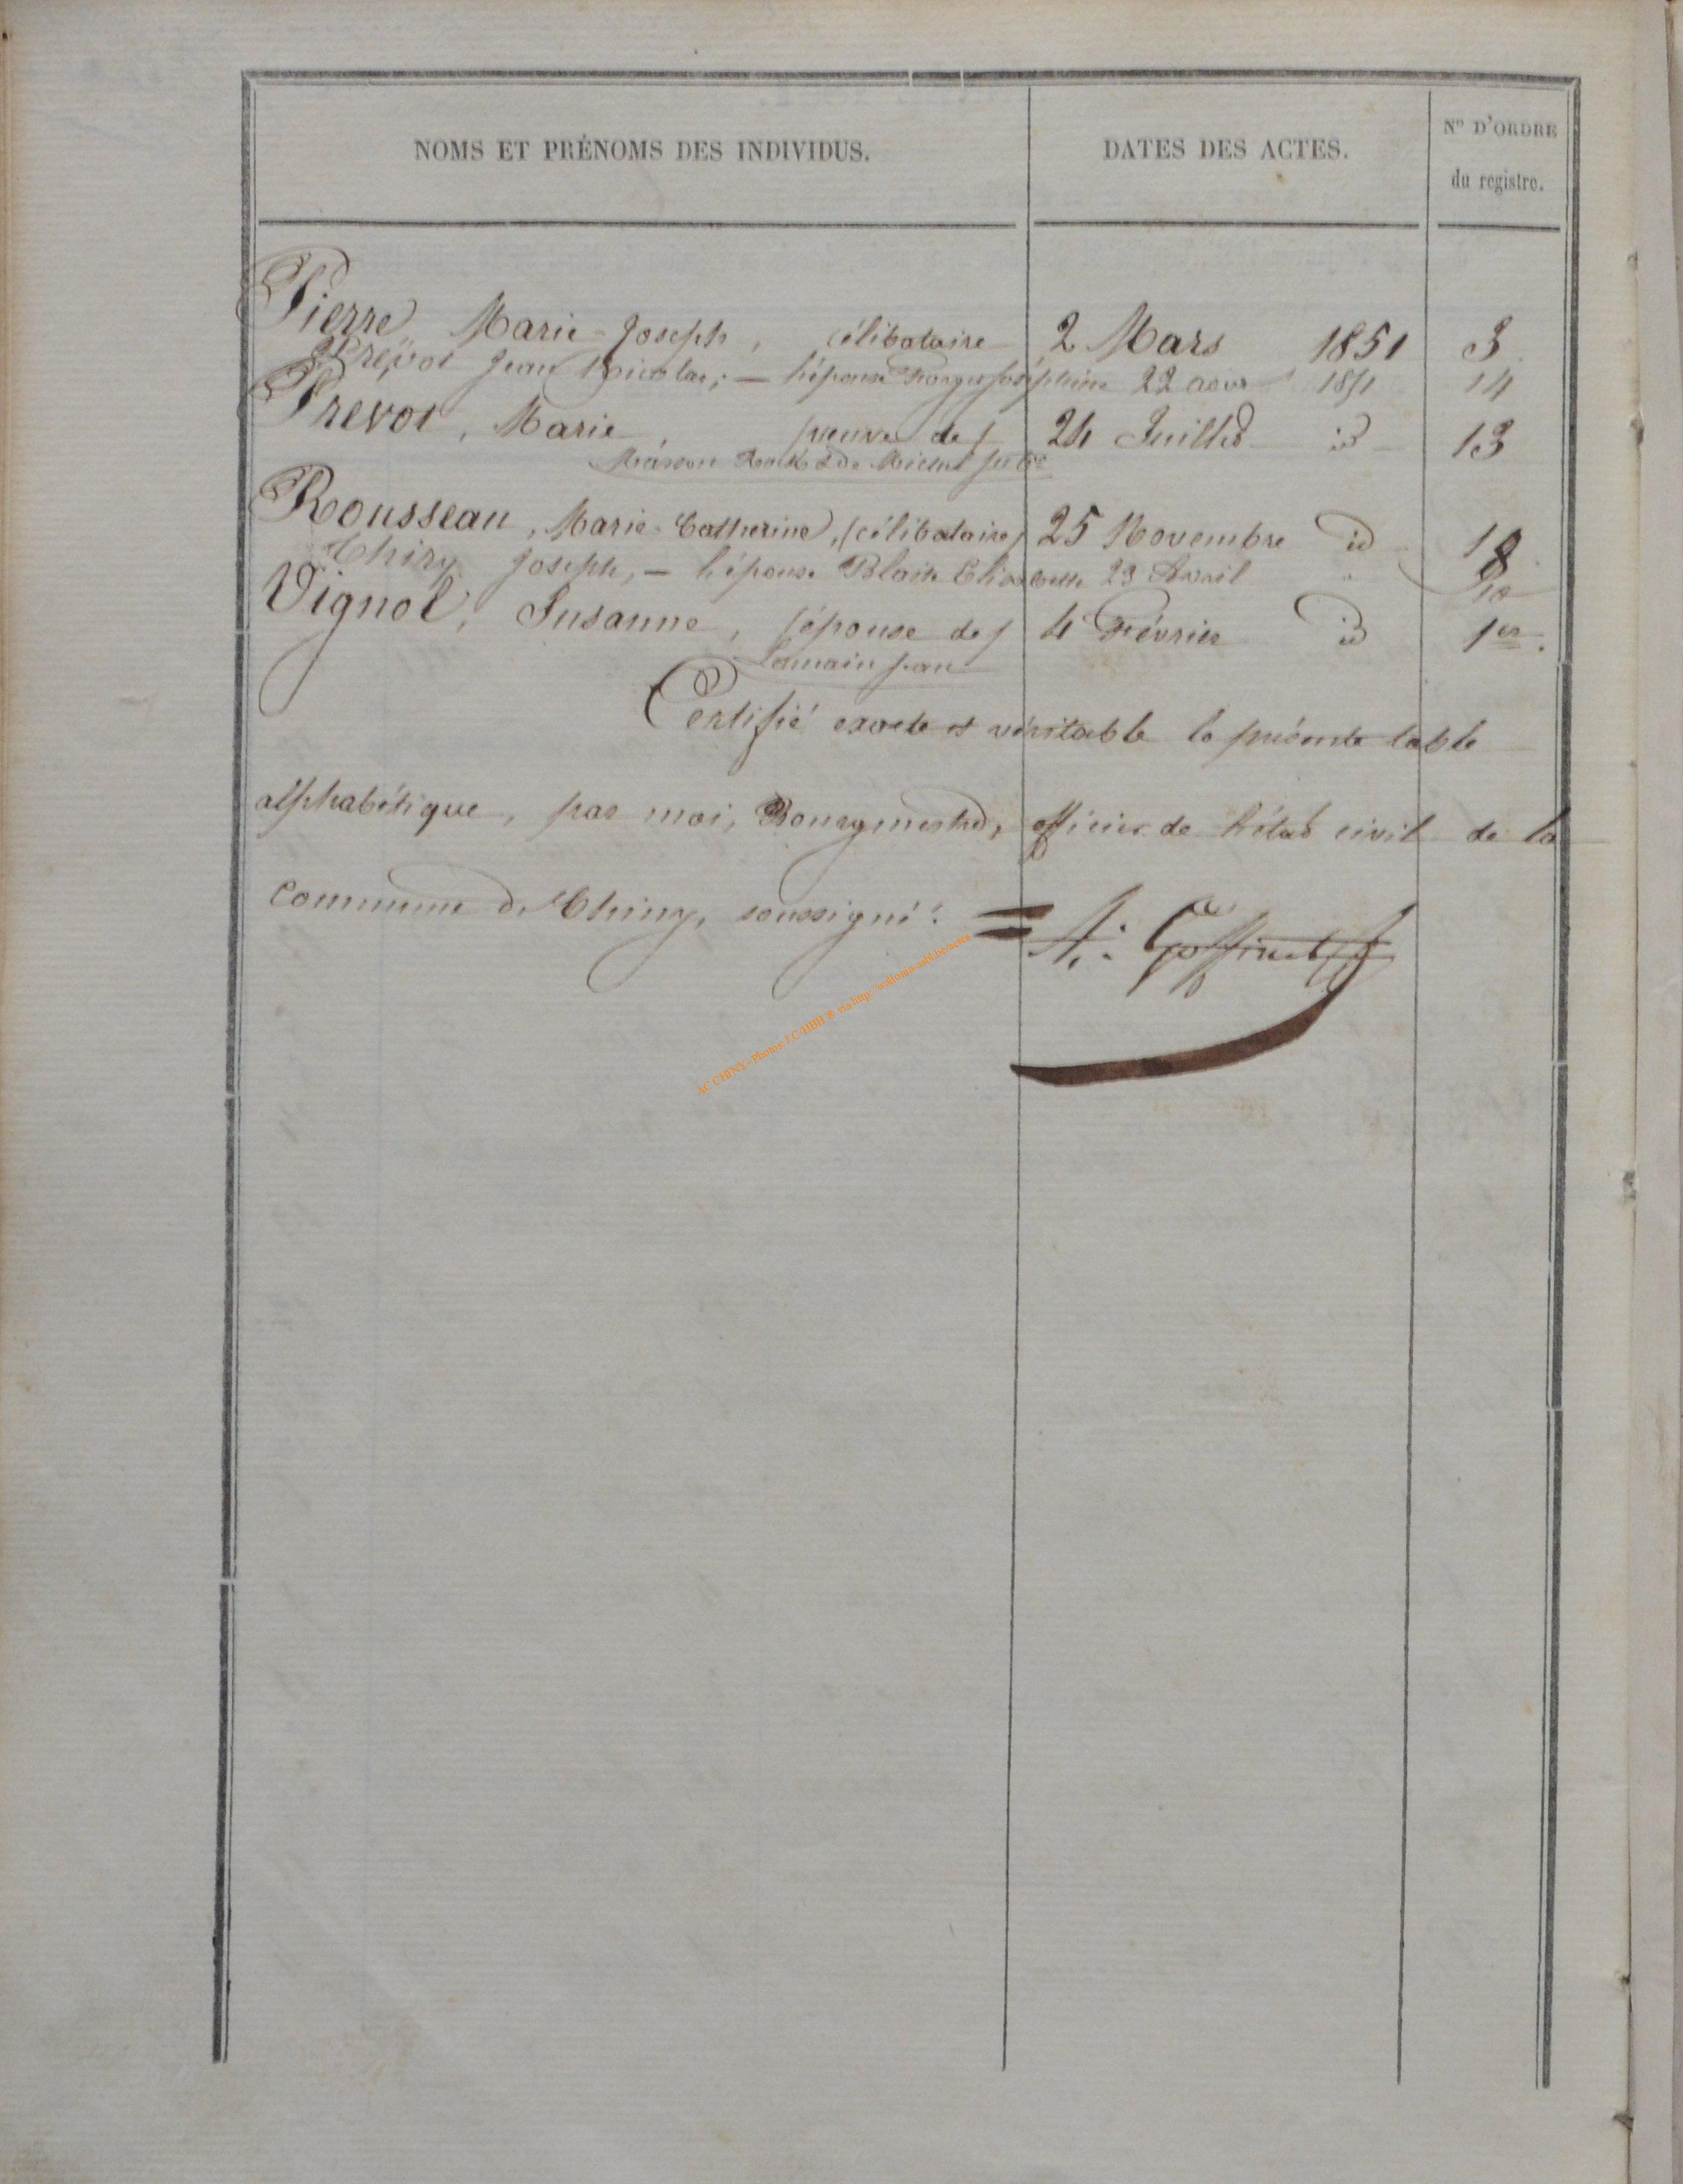 NOMS ET PRÉNOMS DES INDIVIDUS. DATES DES ACTES. Nº D'ORDRE
du registre.
Pierre, Marie-Joseph, célibataire 2 Mars 1851 3
Prevot Jean Nicolas, — l'épouse Josephine 22 aout 1851 14
Prevot, Marie, (veuve de) 24 Juillet id 13
Masson
Rousseau, Marie-Catherine, (célibataire) 25 Novembre id 18
Thiry Joseph, — l'épouse Blaise Elisabeth 23 Avril 10
Vignol, Susanne, (épouse de) 4 Février id 1er.
Lemain Jean
Certifié exacte et véritable la présente table
alphabétique, par moi, Bourgmestre, officier de l'état civil de la
Commune de Chiny, soussigné:
A: Goffinet
AC CHINY - Photos LC-HBH ® via http://wallonia-asbl.be/actes